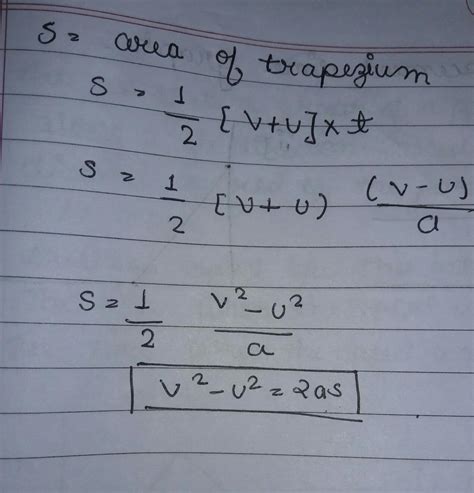 S = area of trapezium
S = 1/2 [V+U] x t
S = 1/2 [V+U) (V-U)/a
S = 1/2 V²-U²/a
V²-U² = 2as